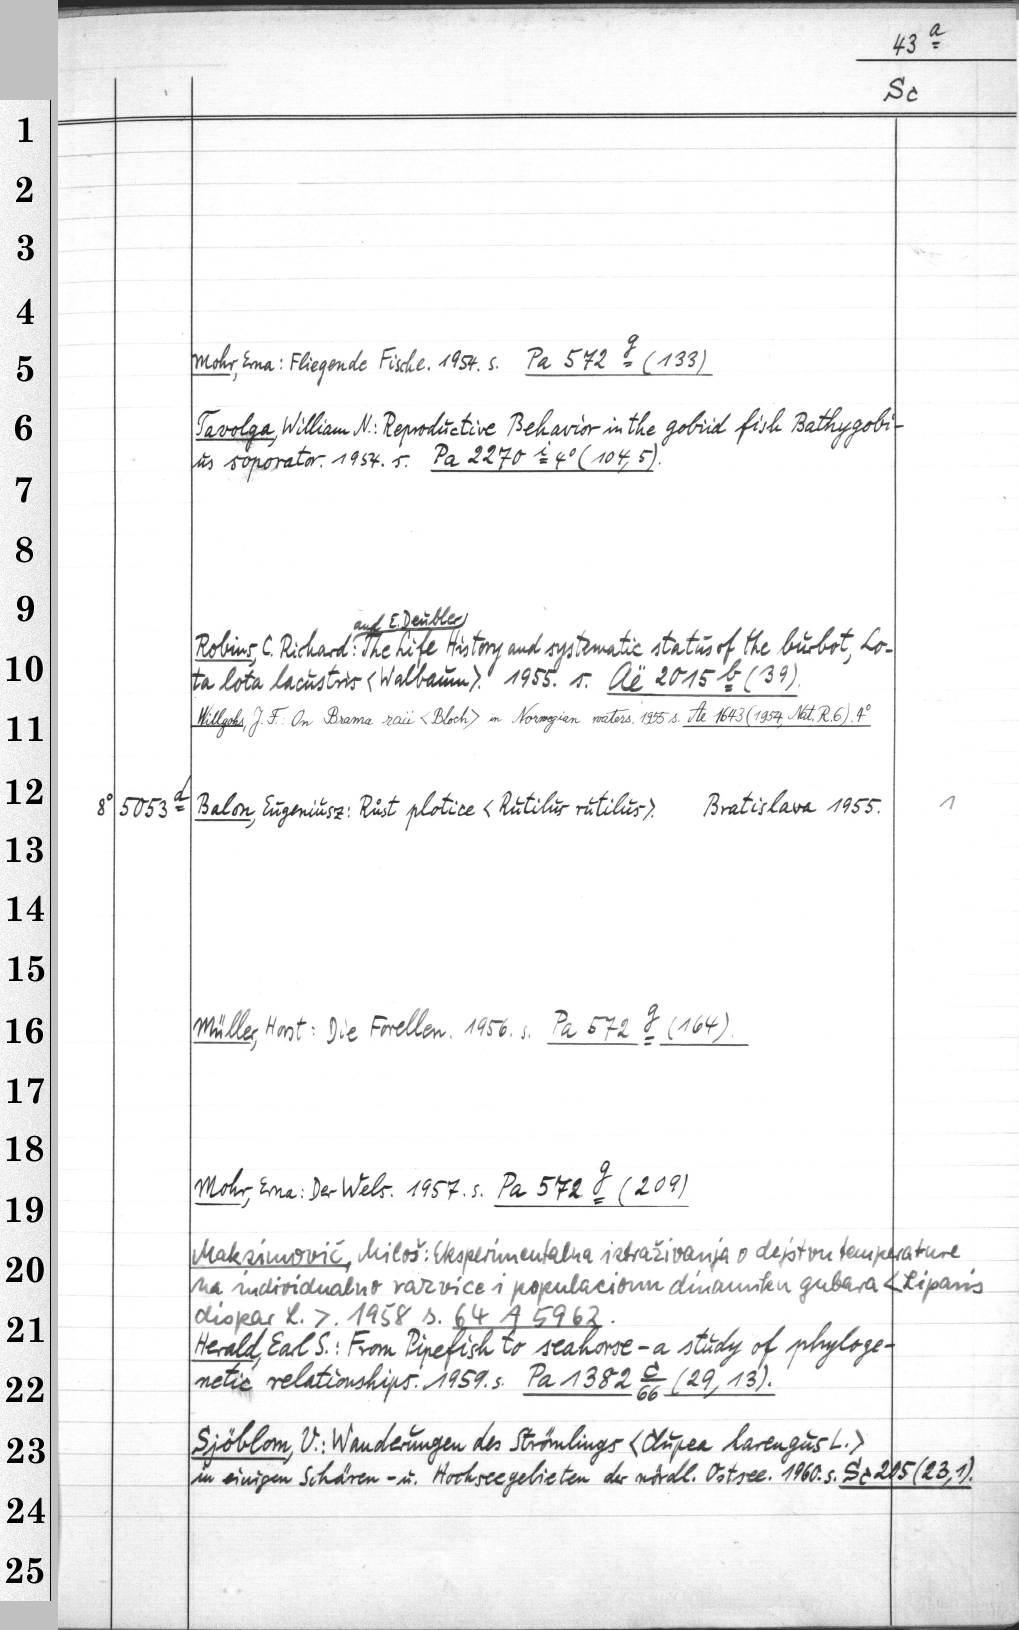 43 a
Sc
1
2
3
4
5
6
7
8
9
10
11
12
13
14
15
16
17
18
19
20
21
22
23
24
25
Mohr, Erna: Fliegende Fische. 1954. s. Pa 572 g (133)
Tavolga, William N.: Reproductive Behavior in the gobiid fish Bathygobi-
us soporator. 1954. s. Pa 2270 i 4° (104,5).
and E. Deubler
Robins, C. Richard: The Life History and systematic status of the burbot, Lo-
ta lota lacustris <Walbaum>. 1955. s. Aë 2015 b (39).
Willgohs, J. F.: On Brama raii <Bloch> in Norwegian waters. 1955 s. Ae 1643 (1954, Nat. R. 6). 4°
8° 5053 d Balon, Eugeniusz: Růst plotice <Rutilus rutilus>. Bratislava 1955. 1
Müller, Horst: Die Forellen. 1956. s. Pa 572 g (164).
Mohr, Erna: Der Wels. 1957. s. Pa 572 g (209)
Maksimović, Miloš: Eksperimentalna istraživanja o dejstvu temperature
na individualno razviće i populacionu dinamiku gubara <Liparis
dispar L.>. 1958 s. 64 A 5962.
Herald, Earl S.: From Pipefish to seahorse - a study of phyloge-
netic relationships. 1959. s. Pa 1382 c/66 (29, 13).
Sjöblom, V.: Wanderungen des Strömlings <Clupea harengus L.>
in einigen Schären- u. Hochseegebieten der nördl. Ostsee. 1960. s. Sc 205 (23,1).